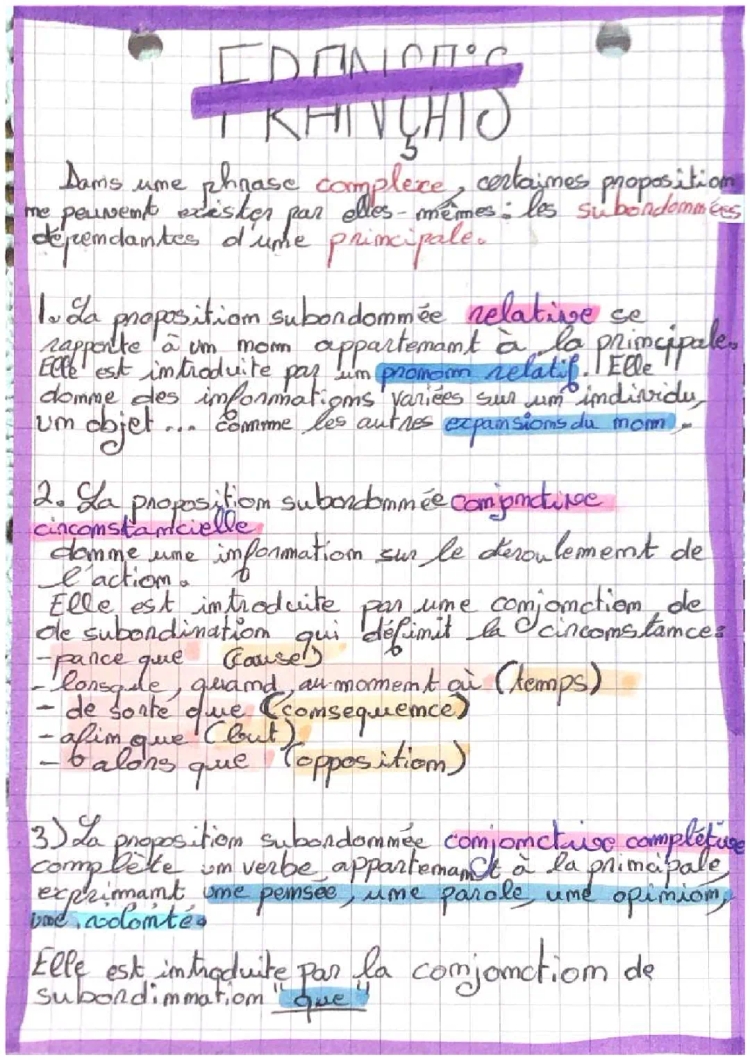 FRANÇAIS
Dans une phrase complexe, certaines proposition
ne peuvent exister par elles-mêmes : les subordonnées
dépendantes d'une principale.
1. La proposition subordonnée relative se
rapporte à un nom appartenant à la principale.
Elle est introduite par un pronom relatif. Elle
donne des informations variées sur un individu,
un objet... comme les autres expansions du nom.
2. La proposition subordonnée conjonctive
circonstancielle
donne une information sur le déroulement de
l'action.
Elle est introduite par une conjonction de
de subordination qui définit la circonstance :
- parce que (cause)
- lorsque, quand, au moment où (temps)
- de sorte que (consequence)
- afin que (but)
- alors que (opposition)
3) La proposition subordonnée conjonctive complétive
complète un verbe appartenant à la principale,
exprimant une pensée, une parole, une opinion,
une volonté.
Elle est introduite par la conjonction de
subordinnation "que"